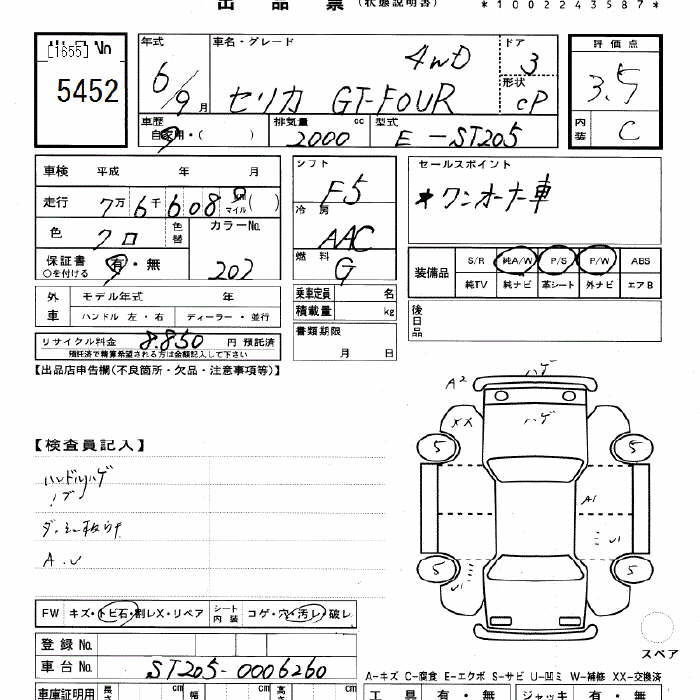 出品票 (状態説明書) *1002243587*
[1655] No
5452
年式 6/9月
車名・グレード 4WD
セリカ GT-FOUR
ドア 3
形状 CP
評価点 3.5
内装 C
車歴 自家用・( )
排気量 cc 2000
型式 E-ST205
車検 平成 年 月
走行 7万6千608 マイル( )
色 クロ 色替
カラーNo. 202
保証書 有・無
○を付ける
シフト F5
冷房 AAC
燃料 G
セールスポイント
★ワンオーナー車
装備品 S/R 純A/W P/S P/W ABS
純TV 純ナビ 革シート 外ナビ エアB
外車 モデル年式 年
ハンドル 左・右 ディーラー・並行
乗車定員 名
積載量 kg
書類期限
月 日
後日品
リサイクル料金 8.850 円 預託済
預託済で精算希望される方は金額記入して下さい
【出品店申告欄(不良箇所・欠品・注意事項等)】
ハゲ
A2
ハゲ
XX
5 5
A1
5 5
【検査員記入】
ハンドルハゲ
A.U
FW キズ・トビ石・割レX・リペア シート内装 コゲ・穴・汚レ・破レ
登録No.
車台No. ST205-0006260
スペア
A-キズ C-腐食 E-エクボ S-サビ U-凹ミ W-補修 XX-交換済
車庫証明用 長さ cm 幅 cm 高さ cm
工具 有・無 ジャッキ 有・無